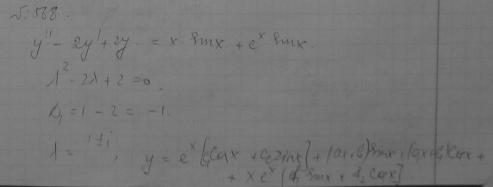 № 568.
y'' - 2y' + 2y = x sin x + e^x sin x.
λ² - 2λ + 2 = 0.
D₁ = 1 - 2 = -1.
λ = 1 ± i; y = e^x [C₁ cos x + C₂ sin x] + (ax+b) sin x + (a₁x+b₁) cos x +
+ x e^x (d₁ sin x + d₂ cos x)